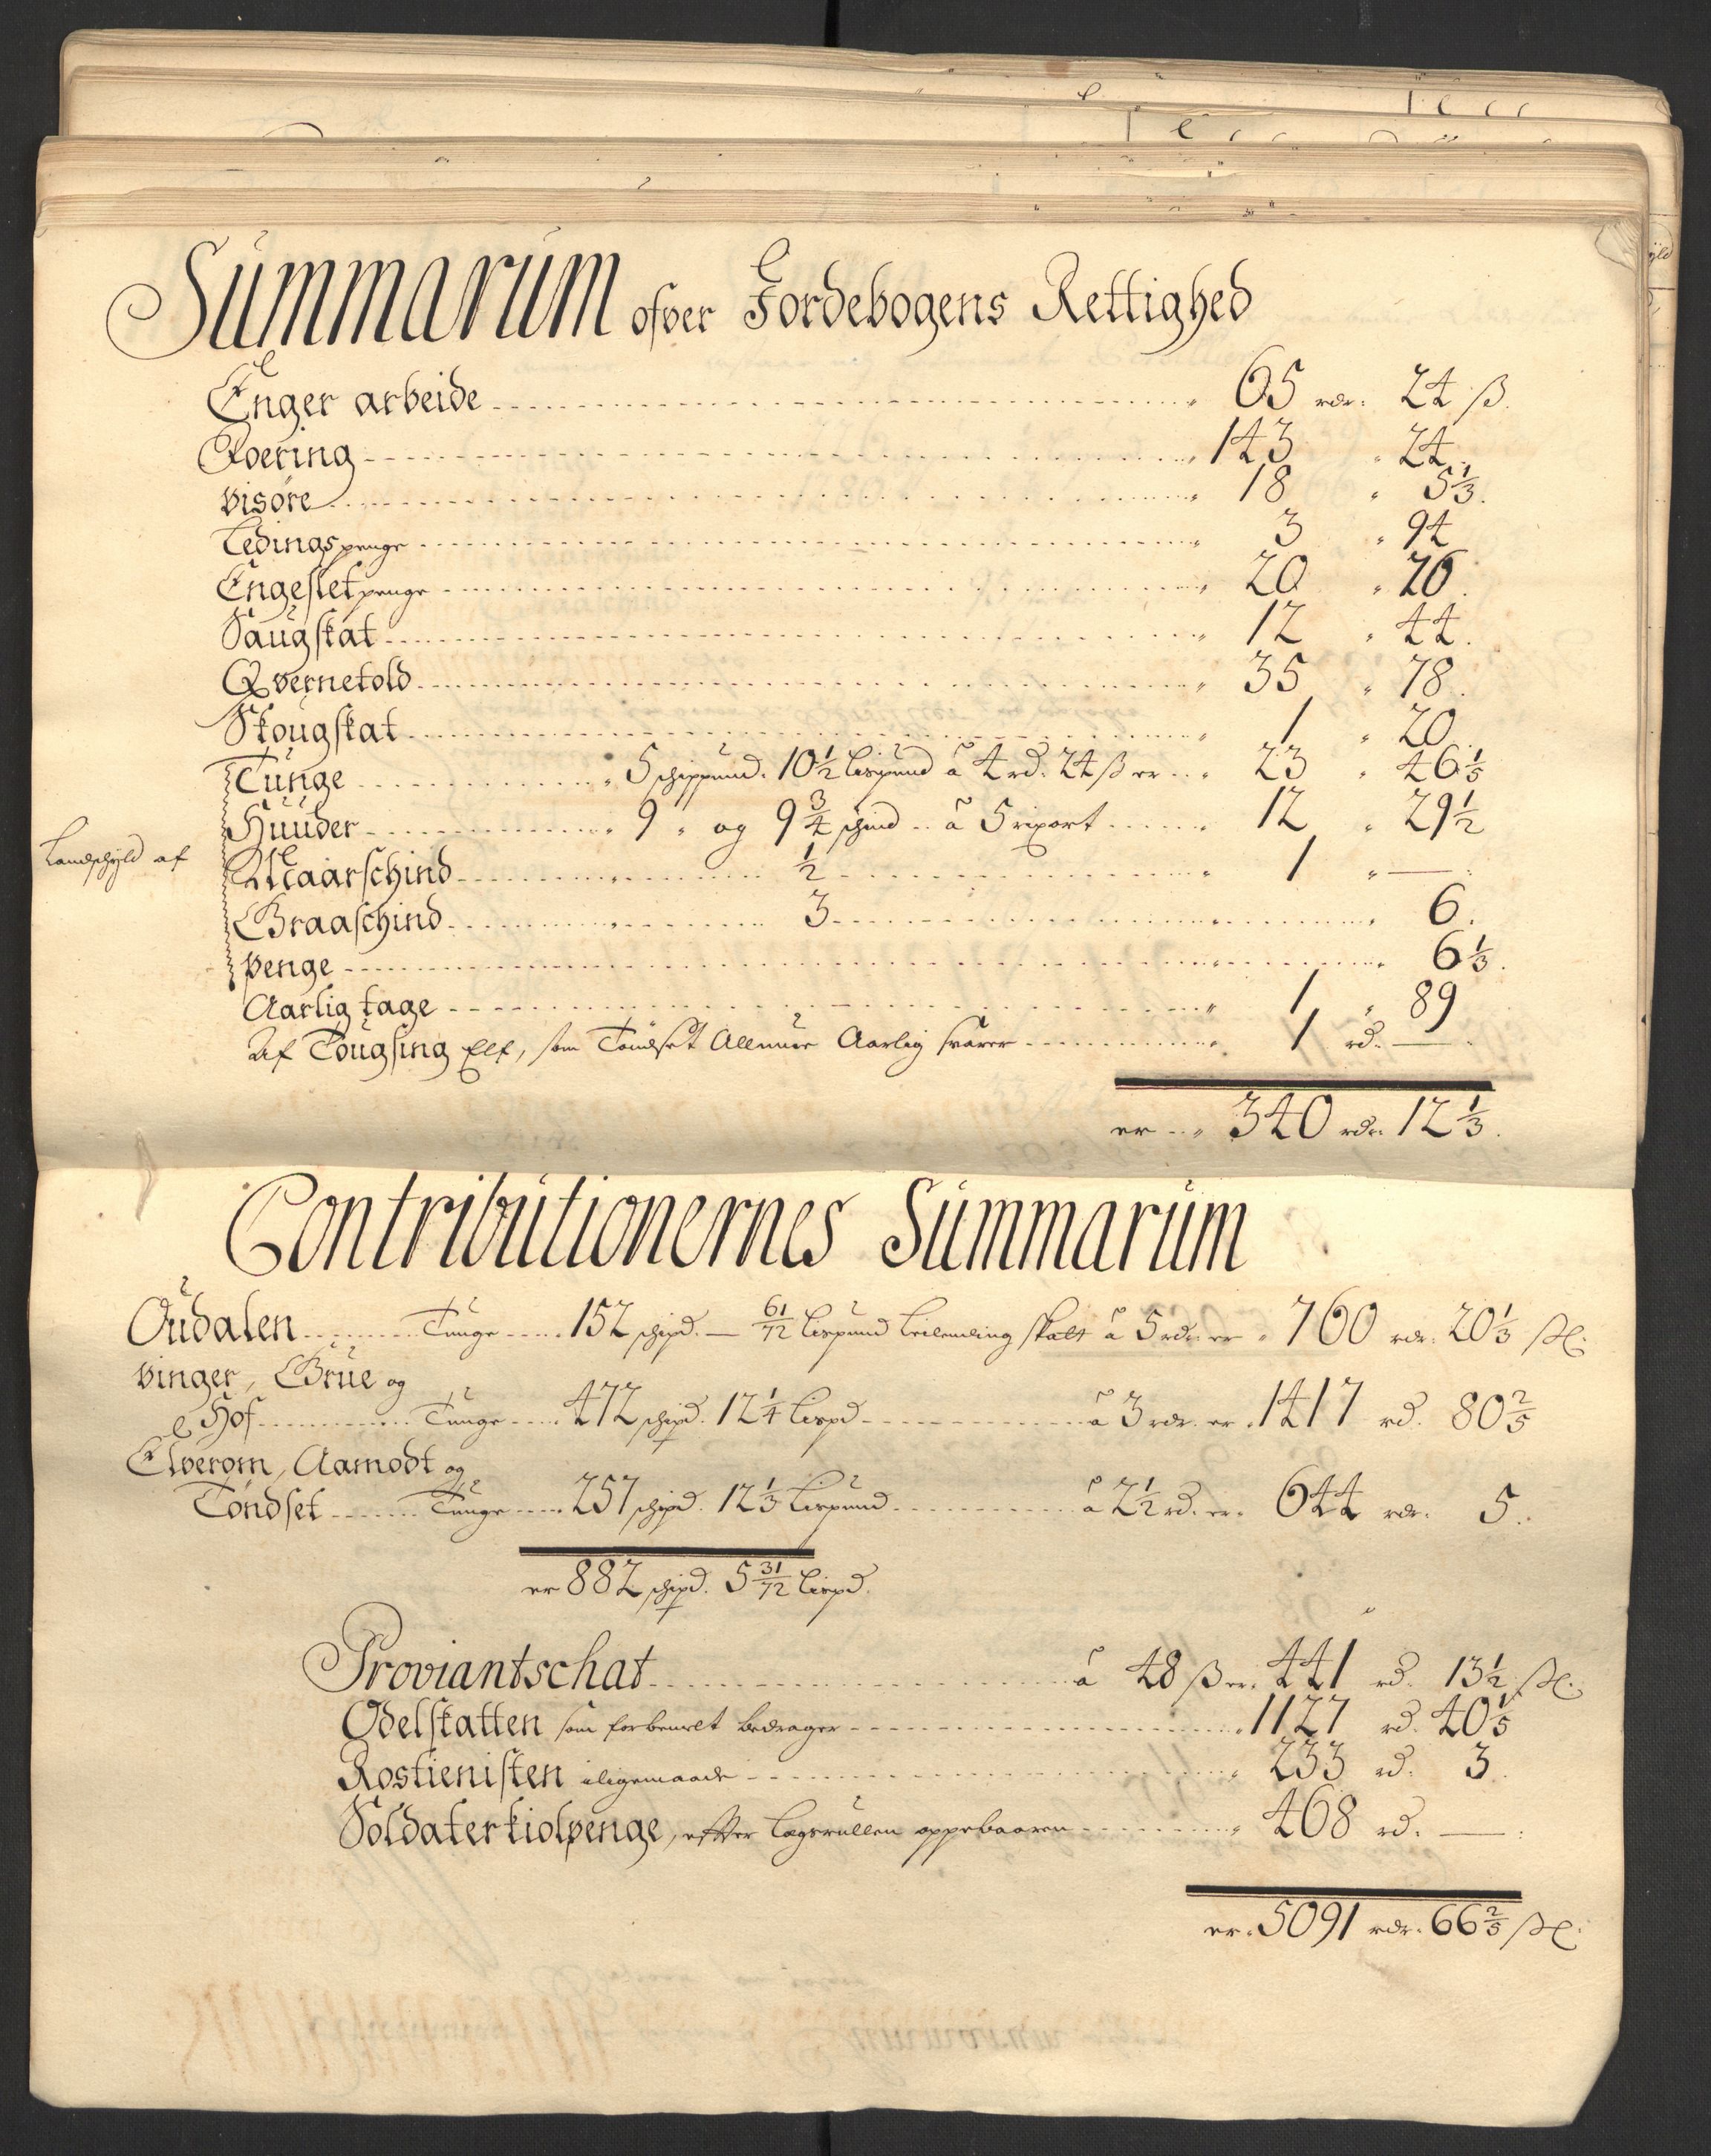 Summarum ofver Jordebogens Rettighed
Enger arbeide 65 rdr. 24 ß.
Foering 143 " 24
visöre 18 " 5 1/3.
Ledings penge 3 " 94
Engeslet penge 20 " 26.
Saugskat 12 " 44.
Qvernetold 35 " 78.
Skougskat 1 " 20
Tunge 5 schippund. 10 1/2 Lispund à 4 rd. 24 ß er 23 " 46 1/5
Huuder 9 " og 9 3/4 schind à 5 rixort 12 " 29 1/2
Landschyld af
Maarschind 1/2 1 " —
Graaschind 3 6.
penge 6 1/3.
Aarlig tage 1 " 89
Af Tougsing Elf, som Tönset Allmue Aarlig svarer 1 rd. —
er 340 rdr. 12 1/3.
Contributionernes Summarum
Oudalen Tunge 152 schpd. — 61/72 Lispund Leilending skatt à 5 rdr. er 760 rdr. 20 1/3 ßl.
Vinger, Grue og
Hof Tunge 472 schpd. 12 1/4 Lispd. à 3 rdr. er 1417 rd. 80 2/5
Elverom, Aamodt og
Töndset Tunge 257 schpd. 12 1/3 Lispund à 2 1/2 rd. er 644 rdr. 5.
er 882 schpd. 5 31/72 Lispd.
Proviantschat à 48 ß er 441 rd. 13 1/2 ßl.
Odelskatten som forbemelt bedrager 1127 rd. 40 1/5
Rostienisten iligemaade 233 rd. 3.
Soldaterkiolpenge, efter Lægsrullen oppebaaren 468 rd. —
er 5091 rdr. 66 2/5 ßl.